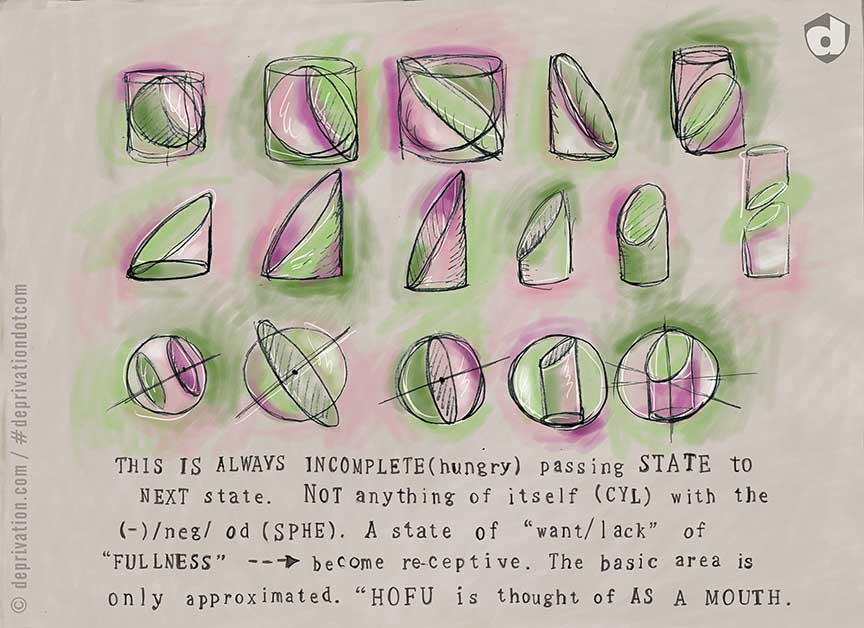 d
THIS IS ALWAYS INCOMPLETE(hungry) passing STATE to
NEXT state. NOT anything of itself (CYL) with the
(-)/neg/ od (SPHE). A state of "want/lack" of
"FULLNESS" ---→ become re-ceptive. The basic area is
only approximated. "HOFU is thought of AS A MOUTH.
© deprivation.com / #deprivationdotcom